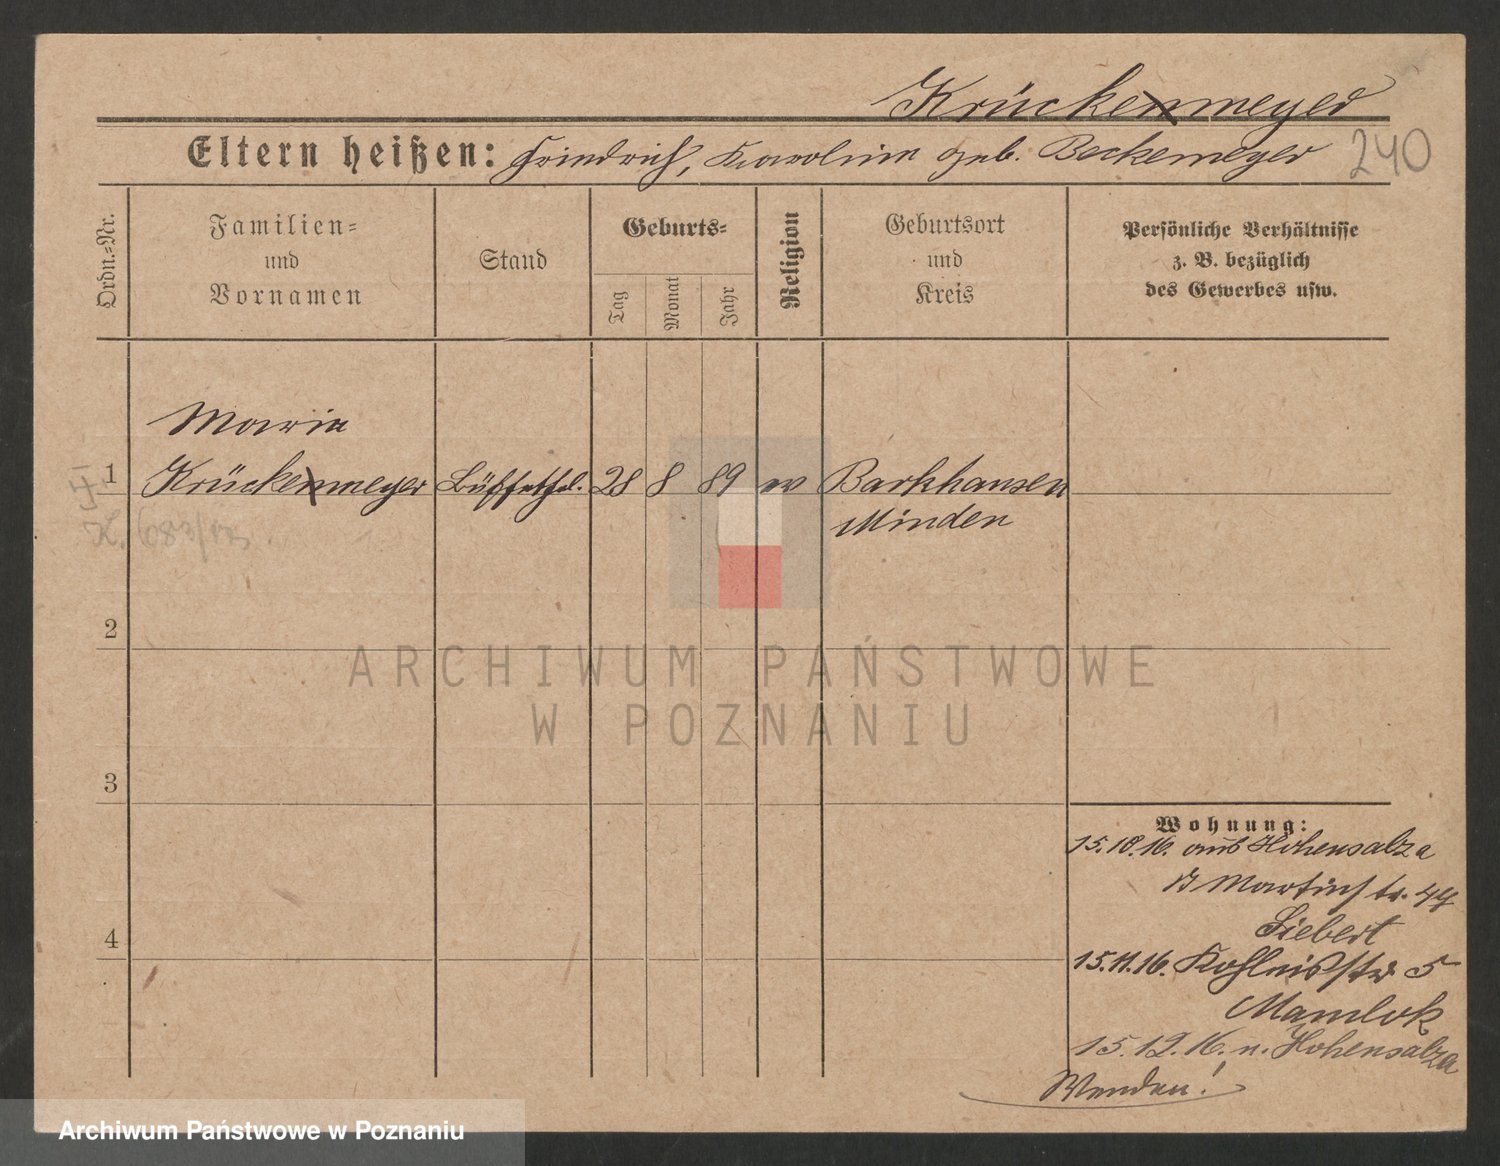 Krückenmeyer
Eltern heißen: Friedrich, Karoline geb. Beckemeyer 240
Ordn.-Nr.
Familien-
und
Vornamen
Stand
Geburts-
Tag
Monat
Jahr
Religion
Geburtsort
und
Kreis
Persönliche Verhältnisse
z. B. bezüglich
des Gewerbes usw.
Marie
1 Krückenmeyer Büffetfrl. 28 8 89 ev Barkhausen
Minden
2
3
4
Wohnung:
15.10.16. aus Hohensalza
Martinstr. 44
Siebert
15.11.16. Kohleisstr 5
Mamlok
15.12.16. n. Hohensalza
Wenden!
ARCHIWUM PAŃSTWOWE
W POZNANIU
Archiwum Państwowe w Poznaniu